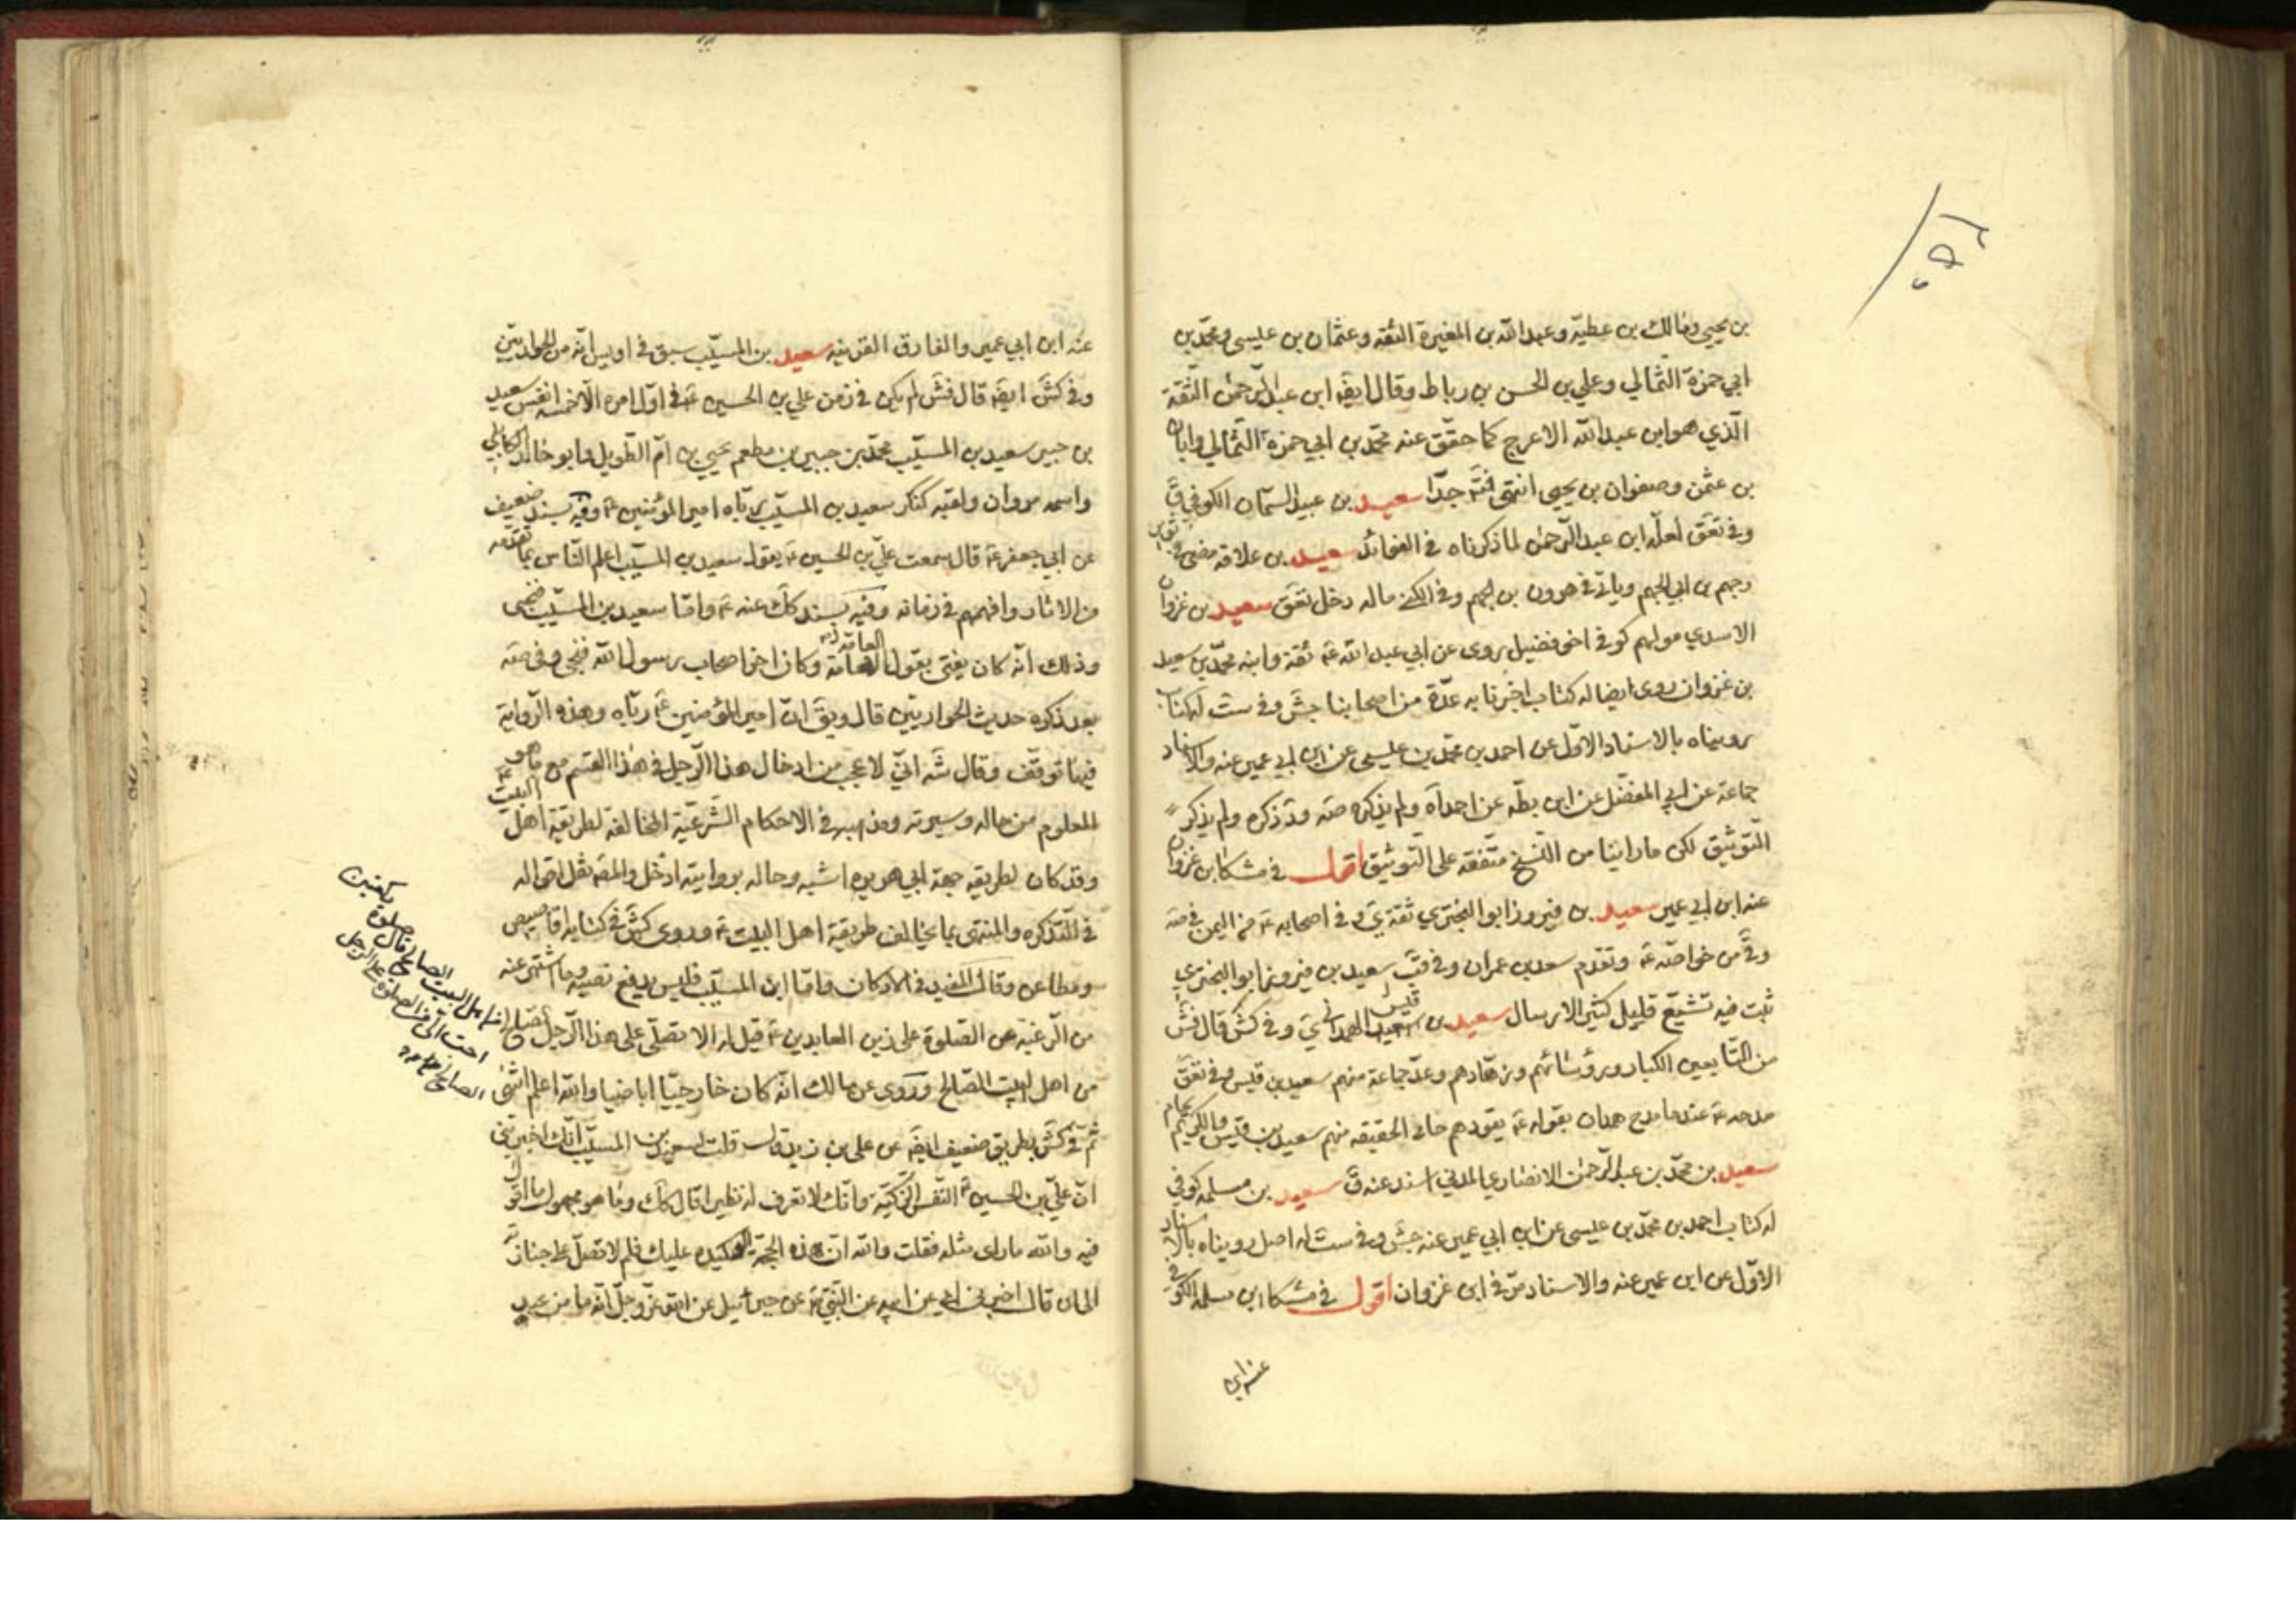 بن يحيى ومالك بن عطيّة وعبدالله بن المغيرة الثقه وعثمان بن عليسى ومحمّد بن
ابي حمزة الثّمالي وعلي بن الحسن بن رباط وقال ايضَه ابن عبد الرّحمٰن الثّقة
الّذي هو ابن عبدالله الاعرج كما حقّق عنه محمّد بن ابي حمزة الثّمالي وابان
بن عثمن وصفوان بن يحيى انتهى فتَه جدّا سعيد بن عبيد السّمان الكوفي قَ
وفي تعَق لعلّه ابن عبد الرّحمٰن لما ذكرناه في الفوائد سعيد بن علاقه مضى في ثوير
وجهم بن ابي الجهم وياتي في هرون بن الجهم وفي الكنى ماله دخل تعَق سعيد بن غزوان
الاسدي مولهم كوفي اخو فضيل روى عن ابي عبد الله عَه ثقة وابنه محمّد بن سعيد
بن غزوان روى ايضا له كتاب اخبرنا به عدّة من اصحابنا جَش وفي ست له كتاب
رويناه بالاسناد الاوّل عن احمد بن محمّد بن عليسى عن ابن ابي عمير عنه والاسناد
جماعة عن ابي المفضّل عن ابن بطّه عن احدآه ولم يذكره صَه وقد ذكره ولم يذكر
التّوثيق لكن ما راينا من النّسخ متّفقه على التّوثيق اقول في مشكا ابن غزوان
عنه ابن ابي عمير سعيد بن فيروز ابو البختري ثقة يَ وفي اصحابه عَه من اليمن في صَه
وقَ من خواصّه عَه وتقدم سعد بن عمران وفي قَب سعيد بن فيروز ابو البختري
ثبت فيه تشيّع قليل كثير الارسال سعيد بن قيس الهمداني يَ وفي كَش قال فَش
من التّابعين الكبار ورؤسائهم وزهّادهم وعدّ جماعة منهم سعيد بن قيس وفي تعَق
مدحه عَه عندما مدح همدان بقوله عَه يقودهم حامي الحقيقه منهم سعيد بن قيس والكريم يحام
سعيد بن محمّد بن عبد الرّحمٰن الانصاري المدني اسند عنه قَ سعيد بن مسلمه كوفي
له كتاب احمد بن محمّد بن عليسى عن ابن ابي عمير عنه جَش وفي ست له اصل رويناه بالاسناد
الاوّل عن ابن عمير عنه والاسناد مرّ في ابن غزوان اقول في مشكا ابن مسلمه الكوفي
عنه ابن
عنه ابن ابي عمير والفارق القرينه سعيد بن المسيّب سبق في اويس انّه من الحواريّين
وفي كَش ايضَه قال فَش لم يكن في زمن علي بن الحسين عَه في اوّل امره الّا خمسة انفس سعيد
بن جبير سعيد بن المسيّب محمّد بن جبير بن مطعم يحيى بن امّ الطّويل وابو خالد الكابلي
واسمه مروان ولقبه كنكر سعيد بن المسيّب ربّاه امير المؤمنين عَه وفيه بسند ضعيف
عن ابي جعفر عَه قال سمعت عليّ بن الحسين عَه يقول سعيد بن المسيّب اعلم النّاس بما تقدّمه
من الاثار وافهمهم في زمانه وفيه بسند كَك عنه عَه وامّا سعيد بن المسيّب فنجى
وذلك انّه كان يفتي بقول العامّة وكان اخر اصحاب رسول الله فنجى وفي صَه
بعد ذكره حديث الحواريّين قال ويَق انّ امير المؤمنين عَه ربّاه وهذه الرّواية
فيها توقف وقال شَه انّي لاعجب من ادخال هذا الرّجل في هذا القسم مع ما هو
المعلوم من حاله وسيرته ومذهبه في الاحكام الشّرعيّة المخالفة لطريقة اهل البيت عَه
وقد كان لطريقه جهة ابي هريره اشبه وحاله بروايته ادخل والمصَه نقل اقواله
في التّذكره والمنتهى بما يخالف طريقة اهل البيت عَه وروى كَش في كتابه اقاصيص
ومطاعن وقال المفيد في الاركان وامّا ابن المسيّب فليس يدفع نصبه وما اشتهر عنه
من الرّغبة عن الصّلوة على زين العابدين عَه قيل له الا تصلّي على هذا الرّجل الصّالح
من اهل البيت الصّالح وروى عن مالك انّه كان خارجيّا اباضيا والله اعلم انتهى
ثمّ في كَش بطريق ضعيف ايضَه عن على بن زيد قال قلت لسعيد بن المسيّب انّك اخبرتني
انّ عليّ بن الحسين عَه النّفس الزّكيّة وانّك لا تعرف له نظيرا قال كَك وما هو مجهول ما اقول
فيه والله ما راى مثله فقلت والله انّ هذه الحجّة الوكيده عليك فلم لا تصلّ على جنازته
الحان قال اخبرني ابي عن ابيه عن النّبيّ عَه عن جبرئيل عن الله عزّ وجلّ انّه ما من عبد